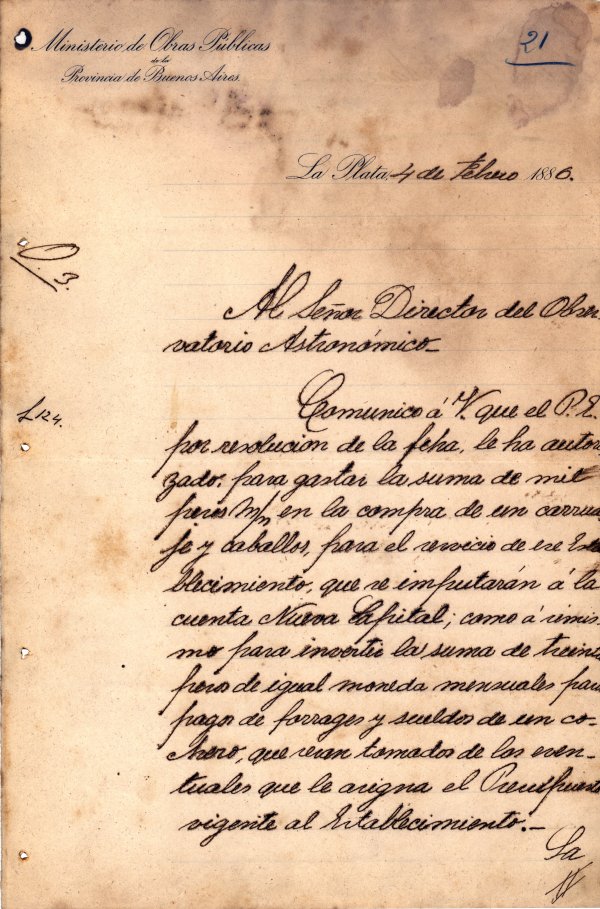 Ministerio de Obras Públicas
de la
Provincia de Buenos Aires.
21
La Plata, 4 de Febrero 1886.
O. 3.
Al Señor Director del Obser-
vatorio Astronómico_
L 124.
Comunico á V. que el P. E.
por resolucion de la fcha, le ha autori
zado, para gastar la suma de mil
pesos m/n en la compra de un carrua
je y caballos, para el servicio de ese Esta
blecimiento, que se imputarán á la
cuenta Nueva Capital; como á simis
mo para invertir la suma de treinta
pesos de igual moneda mensuales para
pagos de forrages y sueldos de un co-
chero, que seran tomados de los even-
tuales que le asigna el Presupuesto
vigente al Establecimiento._
La